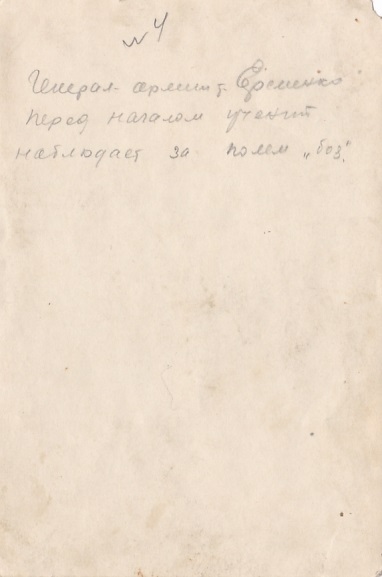 № 4
Генерал-армии т. Еременко
перед началом учений
наблюдает за полем „боя".